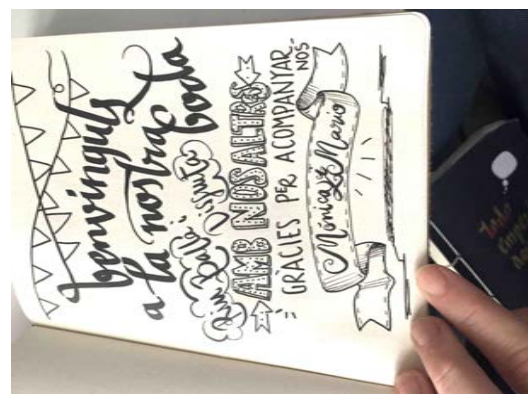 benvinguts
a la nostra boda
Riu, Balla i Disfruta
AMB NOSALTRES
GRÀCIES PER ACOMPANYAR-
NOS
Mónica & Mario